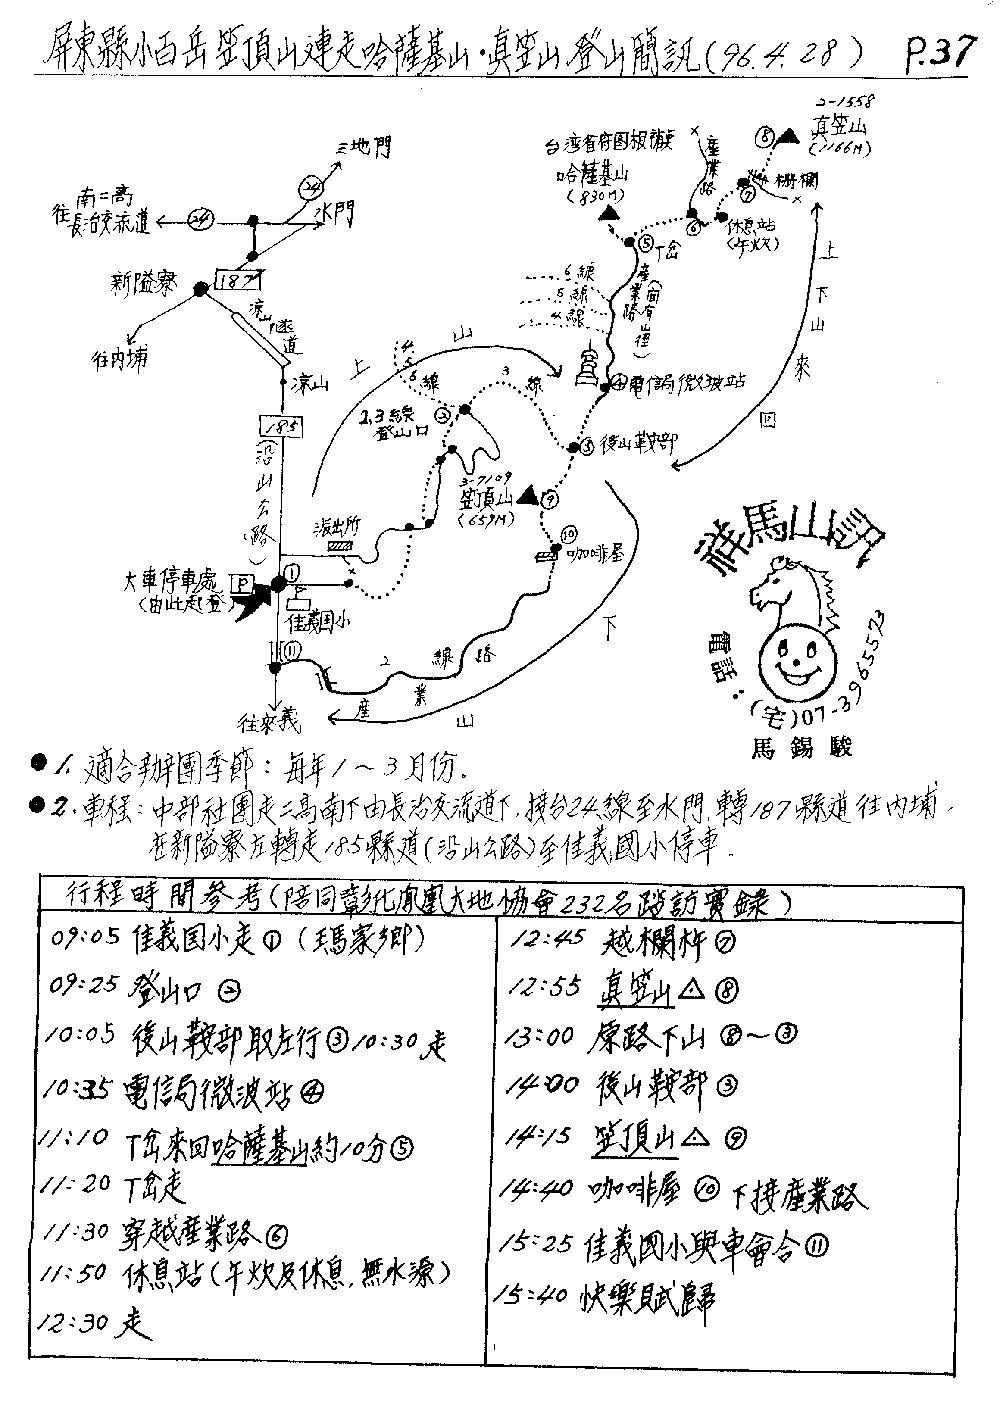 屏東縣小百岳笠頂山連走哈薩基山·真笠山登山簡訊(96.4.28) P.37
三地門
24
南二高
往長治交流道
24
水門
新隘寮
187
涼山隧道
往內埔
涼山
185
(沿山公路)
大車停車處
(由此起登)
P
①
佳義国小
派出所
⑪
往來義
上
山
4
5
6
線
3
線
2,3線
登山口
②
3-7109
笠頂山
(659M)
⑨
⑩
咖啡屋
③後山鞍部
④電信局微波站
6線
5線
4線
產業路
(間有山徑)
⑤T岔
台湾省府图根補點
哈薩基山
(830M)
產業路
⑥
⑦
休息站
(午炊)
柵欄
⑧
2-1558
真笠山
(1166M)
上
下
山
來
回
下
山
2
線
路
產
業
祥馬山訊
電話:(宅)07-3965573
馬錫駿
●1.適合辦團季節:每年1~3月份.
●2.車程:中部社團走二高南下由長治交流道下,接台24線至水門,轉187縣道往內埔,
在新隘寮左轉走185縣道(沿山公路)至佳義國小停車.
行程時間參考(陪同彰化鳳凰大地協會232名踏訪實錄)
09:05 佳義国小走① (瑪家鄉)
09:25 登山口②
10:05 後山鞍部取左行③10:30走
10:35 電信局微波站④
11:10 T岔來回哈薩基山約10分⑤
11:20 T岔走
11:30 穿越產業路⑥
11:50 休息站(午炊及休息,無水源)
12:30 走
12:45 越欄杆⑦
12:55 真笠山△⑧
13:00 原路下山⑧~③
14:00 後山鞍部③
14:15 笠頂山△⑨
14:40 咖啡屋⑩下接產業路
15:25 佳義國小與車會合⑪
15:40 快樂賦歸